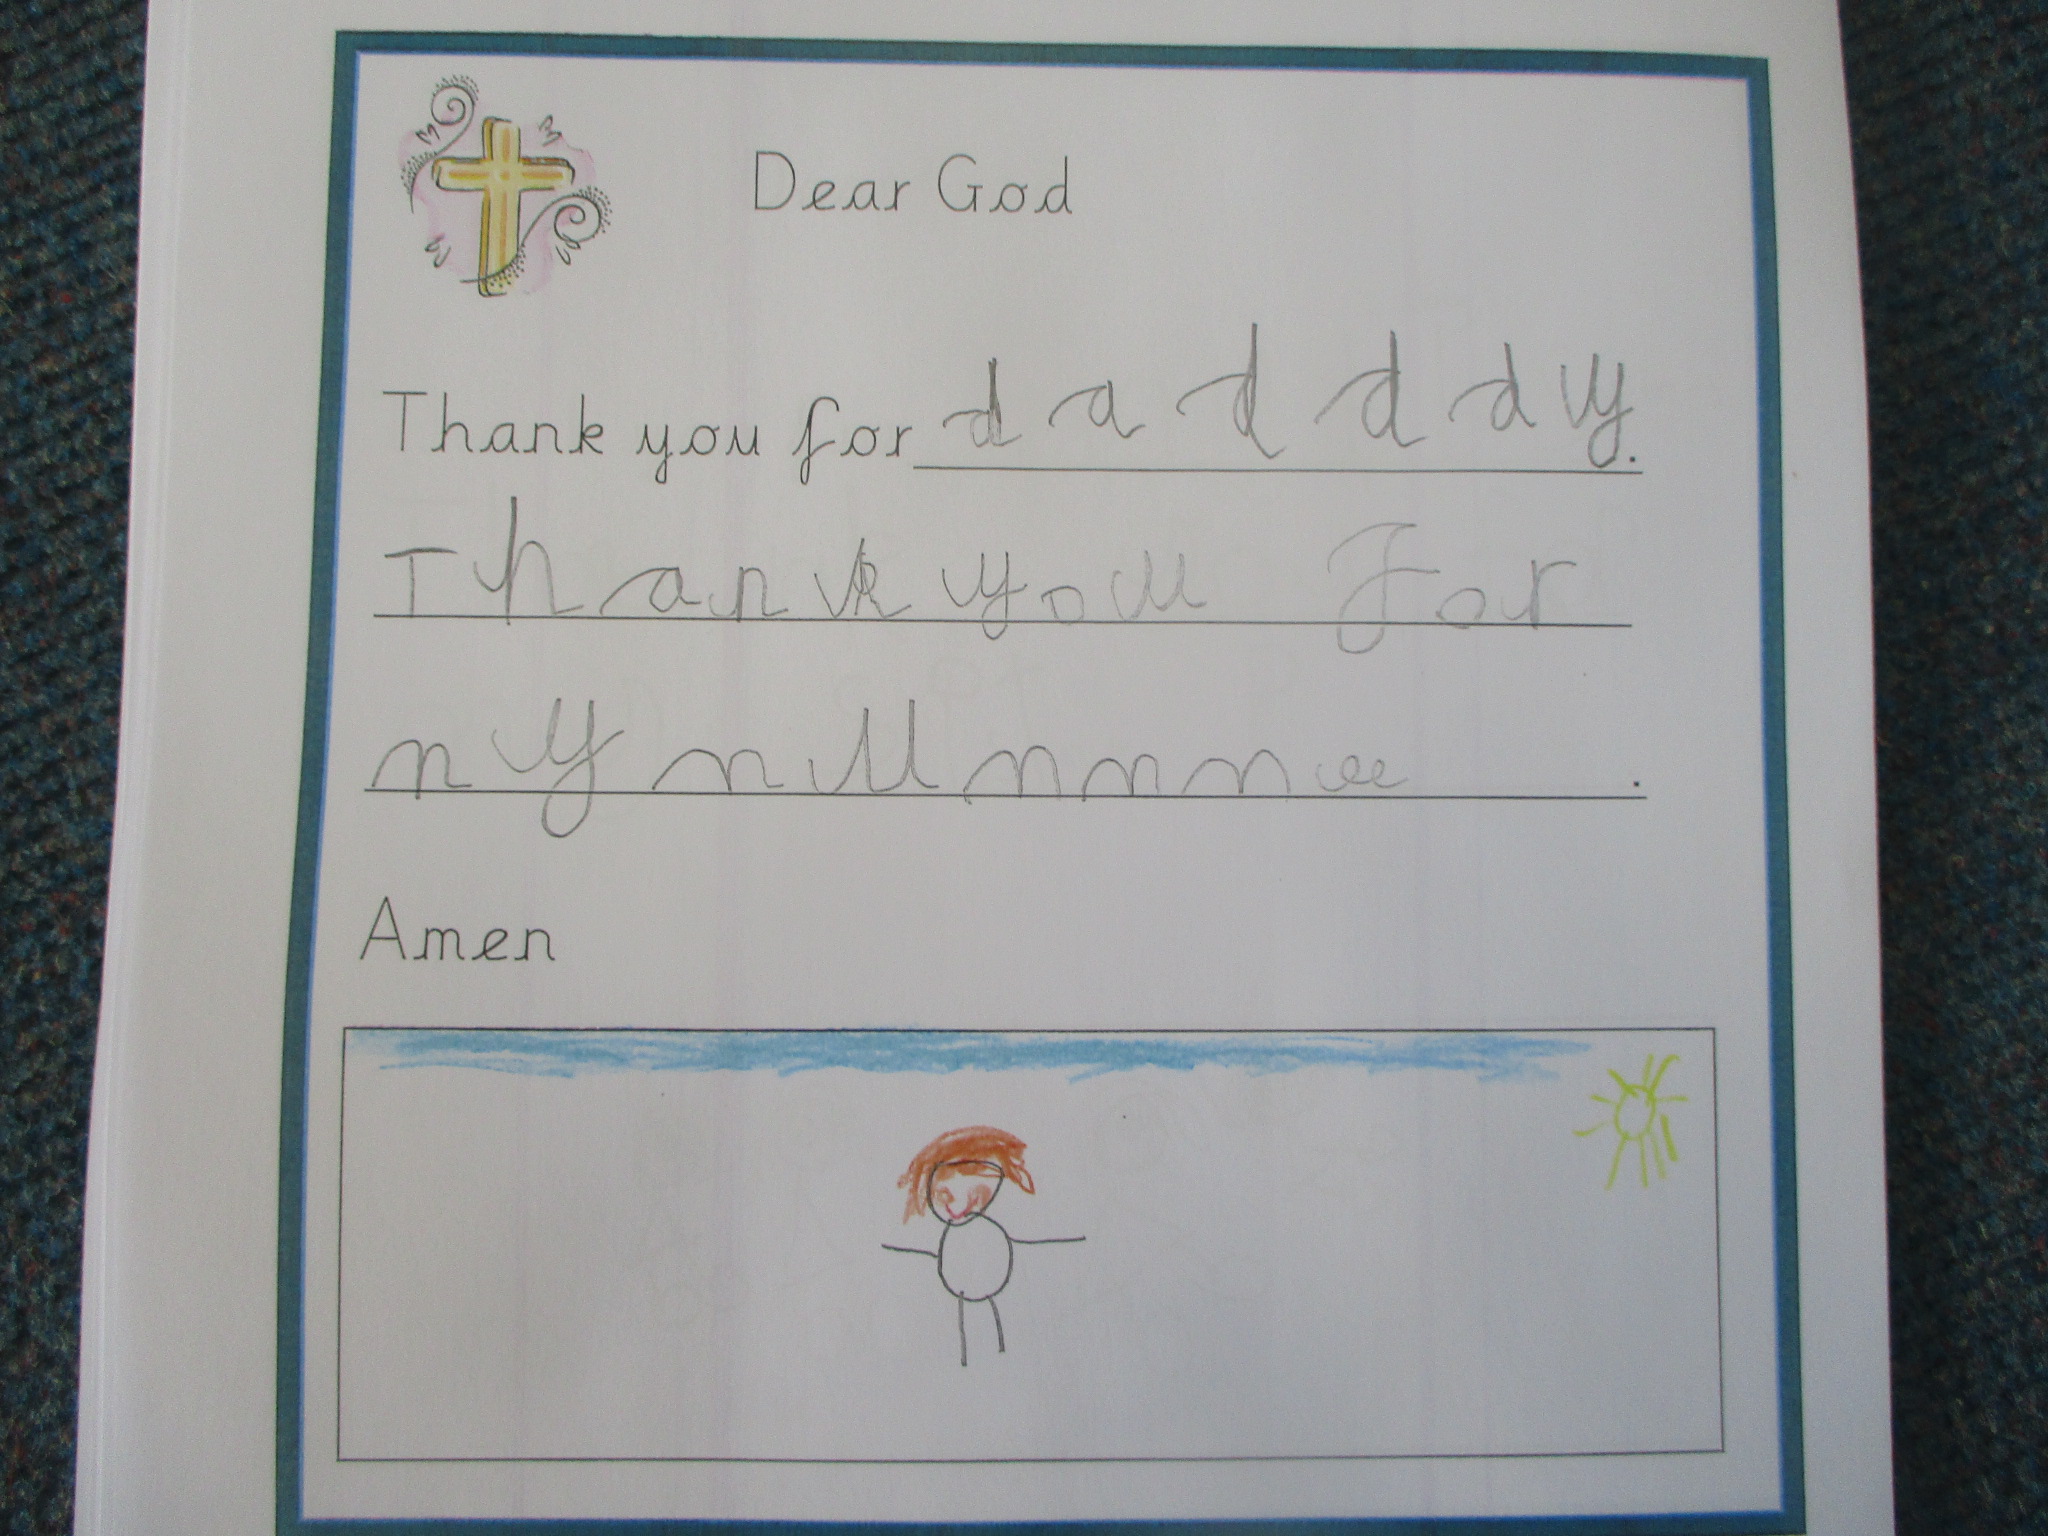 Dear God
Thank you for dadddy.
Thank you for
ny nunnnee .
Amen